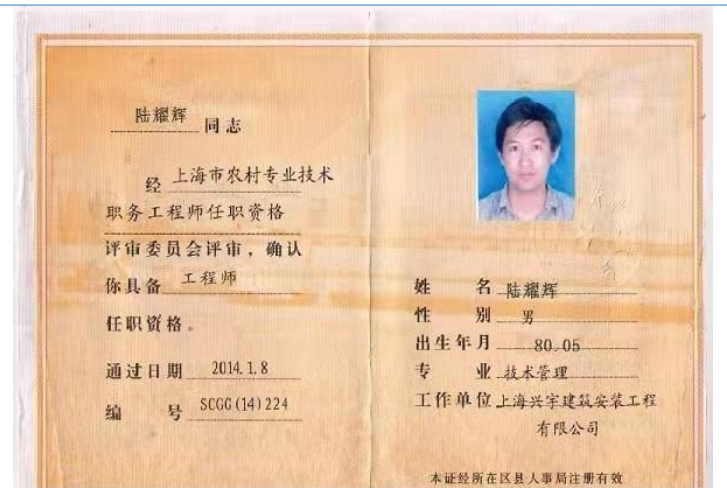 陆耀辉 同志
经 上海市农村专业技术
职务工程师任职资格
评审委员会评审，确认
你具备 工程师
任职资格。
通过日期 2014.1.8
编号 SCGG(14)224
姓名 陆耀辉
性别 男
出生年月 80.05
专业 技术管理
工作单位 上海兴宇建筑安装工程
有限公司
本证经所在区县人事局注册有效